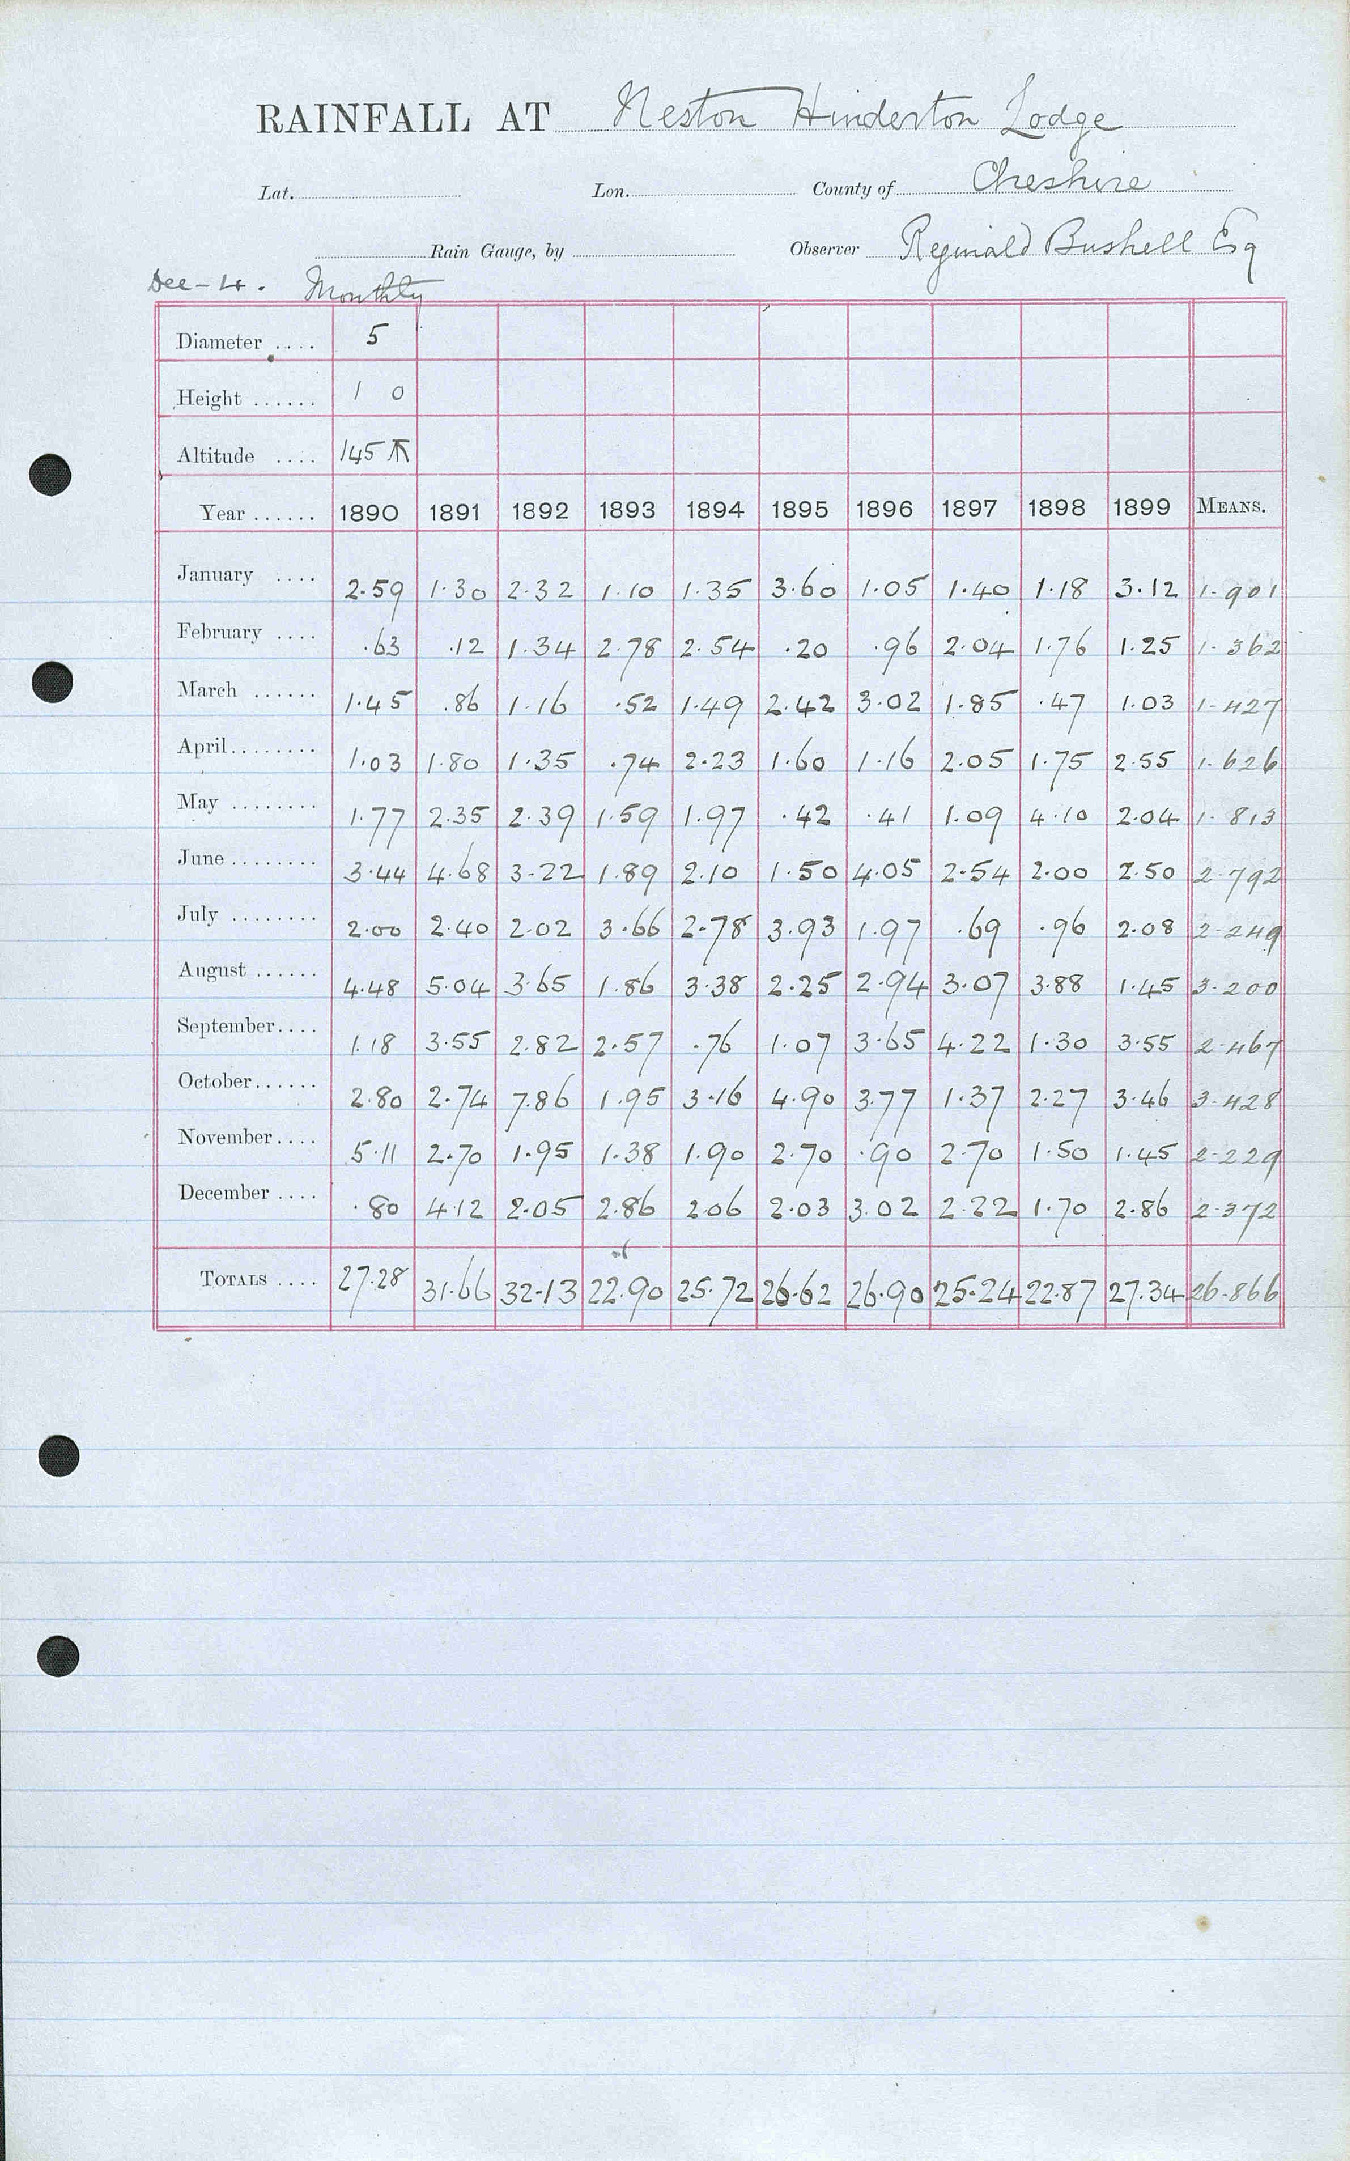 RAINFALL AT Neston Hinderton Lodge
Lat. Lon. County of Cheshire
Rain Gauge, by Observer Reginald Bushell Esq
Dee - 4. Monthly
Diameter .... 5
Height ...... 1 0
Altitude .... 145
Year ...... 1890 1891 1892 1893 1894 1895 1896 1897 1898 1899 MEANS.
January .... 2.59 1.30 2.32 1.10 1.35 3.60 1.05 1.40 1.18 3.12 1.901
February .... .63 .12 1.34 2.78 2.54 .20 .96 2.04 1.76 1.25 1.362
March ...... 1.45 .86 1.16 .52 1.49 2.42 3.02 1.85 .47 1.03 1.427
April........ 1.03 1.80 1.35 .74 2.23 1.60 1.16 2.05 1.75 2.55 1.626
May ........ 1.77 2.35 2.39 1.59 1.97 .42 .41 1.09 4.10 2.04 1.813
June ........ 3.44 4.68 3.22 1.89 2.10 1.50 4.05 2.54 2.00 2.50 2.792
July ........ 2.00 2.40 2.02 3.66 2.78 3.93 1.97 .69 .96 2.08 2.249
August ...... 4.48 5.04 3.65 1.86 3.38 2.25 2.94 3.07 3.88 1.45 3.200
September.... 1.18 3.55 2.82 2.57 .76 1.07 3.65 4.22 1.30 3.55 2.467
October...... 2.80 2.74 7.86 1.95 3.16 4.90 3.77 1.37 2.27 3.46 3.428
November.... 5.11 2.70 1.95 1.38 1.90 2.70 .90 2.70 1.50 1.45 2.229
December .... .80 4.12 2.05 2.86 2.06 2.03 3.02 2.22 1.70 2.86 2.372
TOTALS .... 27.28 31.66 32.13 22.90 25.72 26.62 26.90 25.24 22.87 27.34 26.866